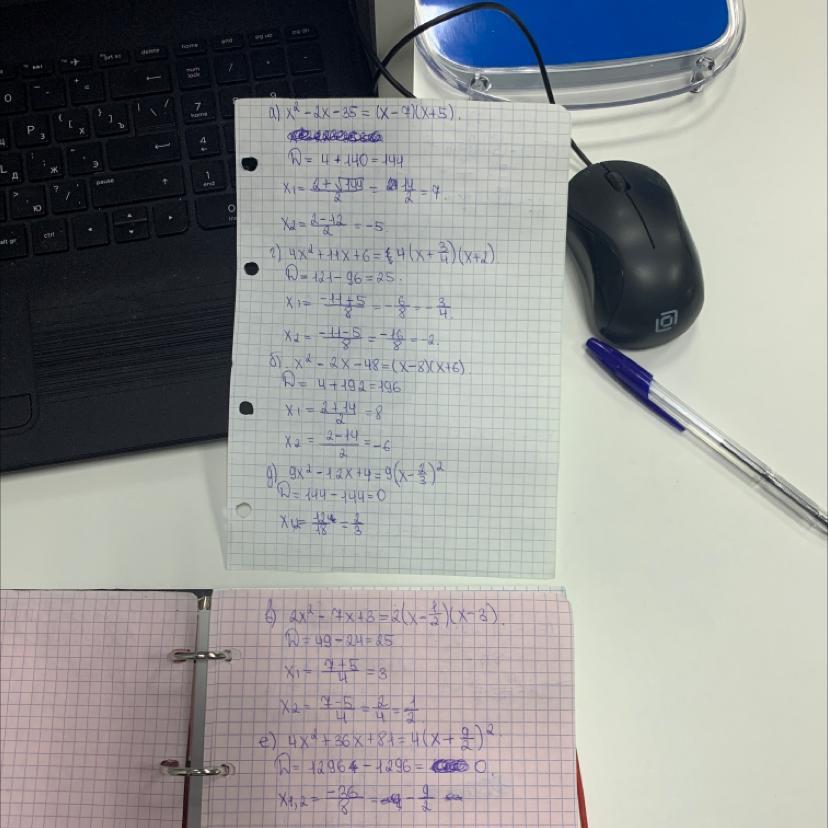 а) x² - 2x - 35 = (x - 7)(x + 5).
D = 4 + 140 = 144
x₁ = (2 + √144)/2 = 14/2 = 7.
x₂ = (2 - 12)/2 = -5.
г) 4x² + 11x + 6 = 4(x + 3/4)(x + 2)
D = 121 - 96 = 25.
x₁ = (-11 + 5)/8 = -6/8 = -3/4.
x₂ = (-11 - 5)/8 = -16/8 = -2.
б) x² - 2x - 48 = (x - 8)(x + 6)
D = 4 + 192 = 196
x₁ = (2 + 14)/2 = 8
x₂ = (2 - 14)/2 = -6
д) 9x² - 12x + 4 = 9(x - 2/3)²
D = 144 - 144 = 0
= 12/18 = 2/3
в) 2x² - 7x + 3 = 2(x - 1/2)(x - 3).
D = 49 - 24 = 25
x₁ = (7 + 5)/4 = 3
x₂ = (7 - 5)/4 = 2/4 = 1/2
е) 4x² + 36x + 81 = 4(x + 9/2)²
D = 1296 - 1296 = 0.
x₁,₂ = -36/8 = -9/2